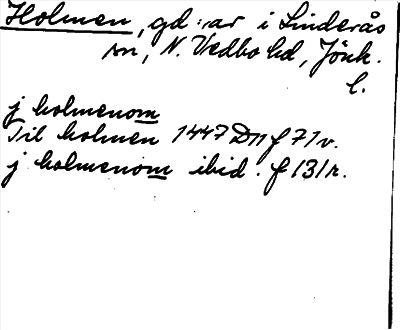 Holmen, gd:ar i Linderås
sn, N. Vedbo hd, Jönk.
l.
j holmenom
Til holmen 1447 D11 f 71v.
j holmenom ibid. f 131r.